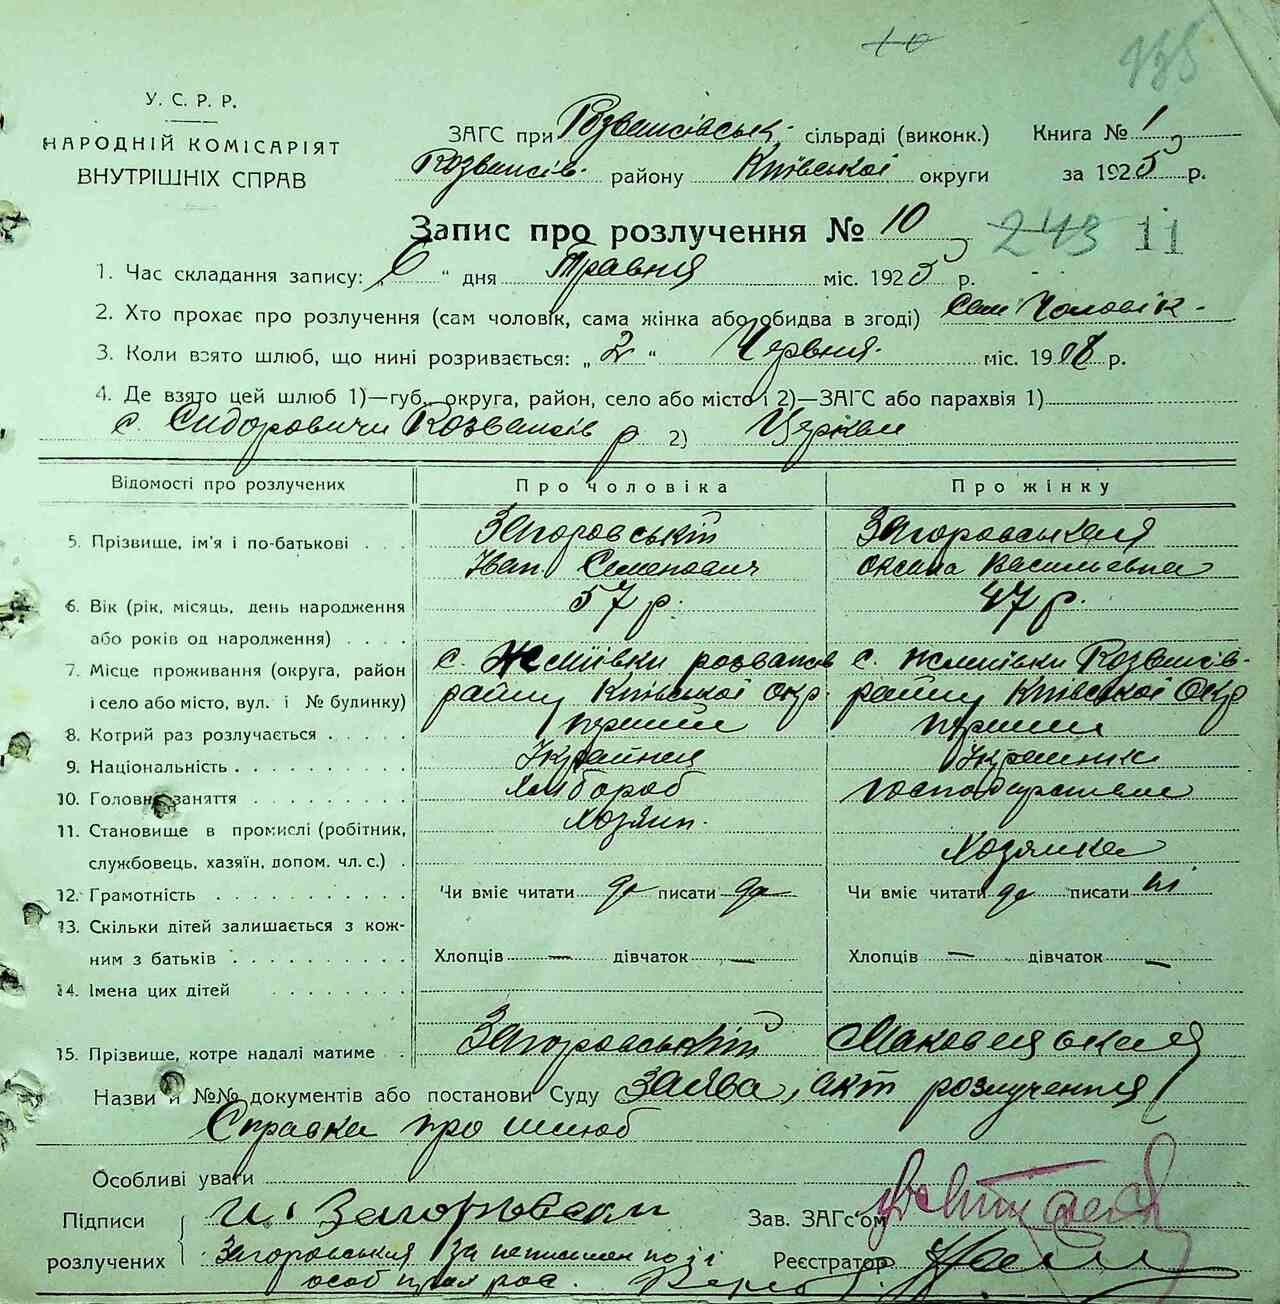 У. С. Р. Р.
НАРОДНІЙ КОМІСАРІЯТ
ВНУТРІШНІХ СПРАВ
ЗАГС при Розважівськ. сільраді (виконк.) Книга № 1
Розважів. району Київської округи за 1925 р.
Запис про розлучення № 10 243 11
1. Час складання запису: „6“ дня Травня міс. 1925 р.
2. Хто прохає про розлучення (сам чоловік, сама жінка або обидва в згоді) Сам Чоловік
3. Коли взято шлюб, що нині розривається: „2“ Червня міс. 1908 р.
4. Де взято цей шлюб 1)—губ., округа, район, село або місто і 2)—ЗАГС або парахвія 1)
с. Сидоровичи Розважів р 2) Церкви
Відомості про розлучених Про чоловіка Про жінку
5. Прізвище, ім'я і по-батькові Загоровський Загоровськая
Іван Семенович Оксана Васильевна
6. Вік (рік, місяць, день народження 57 р. 47 р.
або років од народження)
7. Місце проживання (округа, район с. Жміївки розважів с. Жміївки Розважів.
і село або місто, вул. і № будинку) райну Київської окр. райну Київської Окр
8. Котрий раз розлучається перший перший
9. Національність Українця Українка
10. Головне заняття Хлібороб
11. Становище в промислі (робітник, Хозяин.
службовець, хазяїн, допом. чл. с.) Хозяйка
12. Грамотність Чи вміє читати да писати да Чи вміє читати да писати ні
13. Скільки дітей залишається з кож-
ним з батьків Хлопців — дівчаток — Хлопців — дівчаток —
14. Імена цих дітей
15. Прізвище, котре надалі матиме Загоровський
Назви й №№ документів або постанови Суду Заява, акт розлучення
Справка про шлюб
Особливі уваги
Підписи И. Загоровски Зав. ЗАГС'ом
розлучених Загоровськая за неписмен по її Реєстратор
особ прох рос.